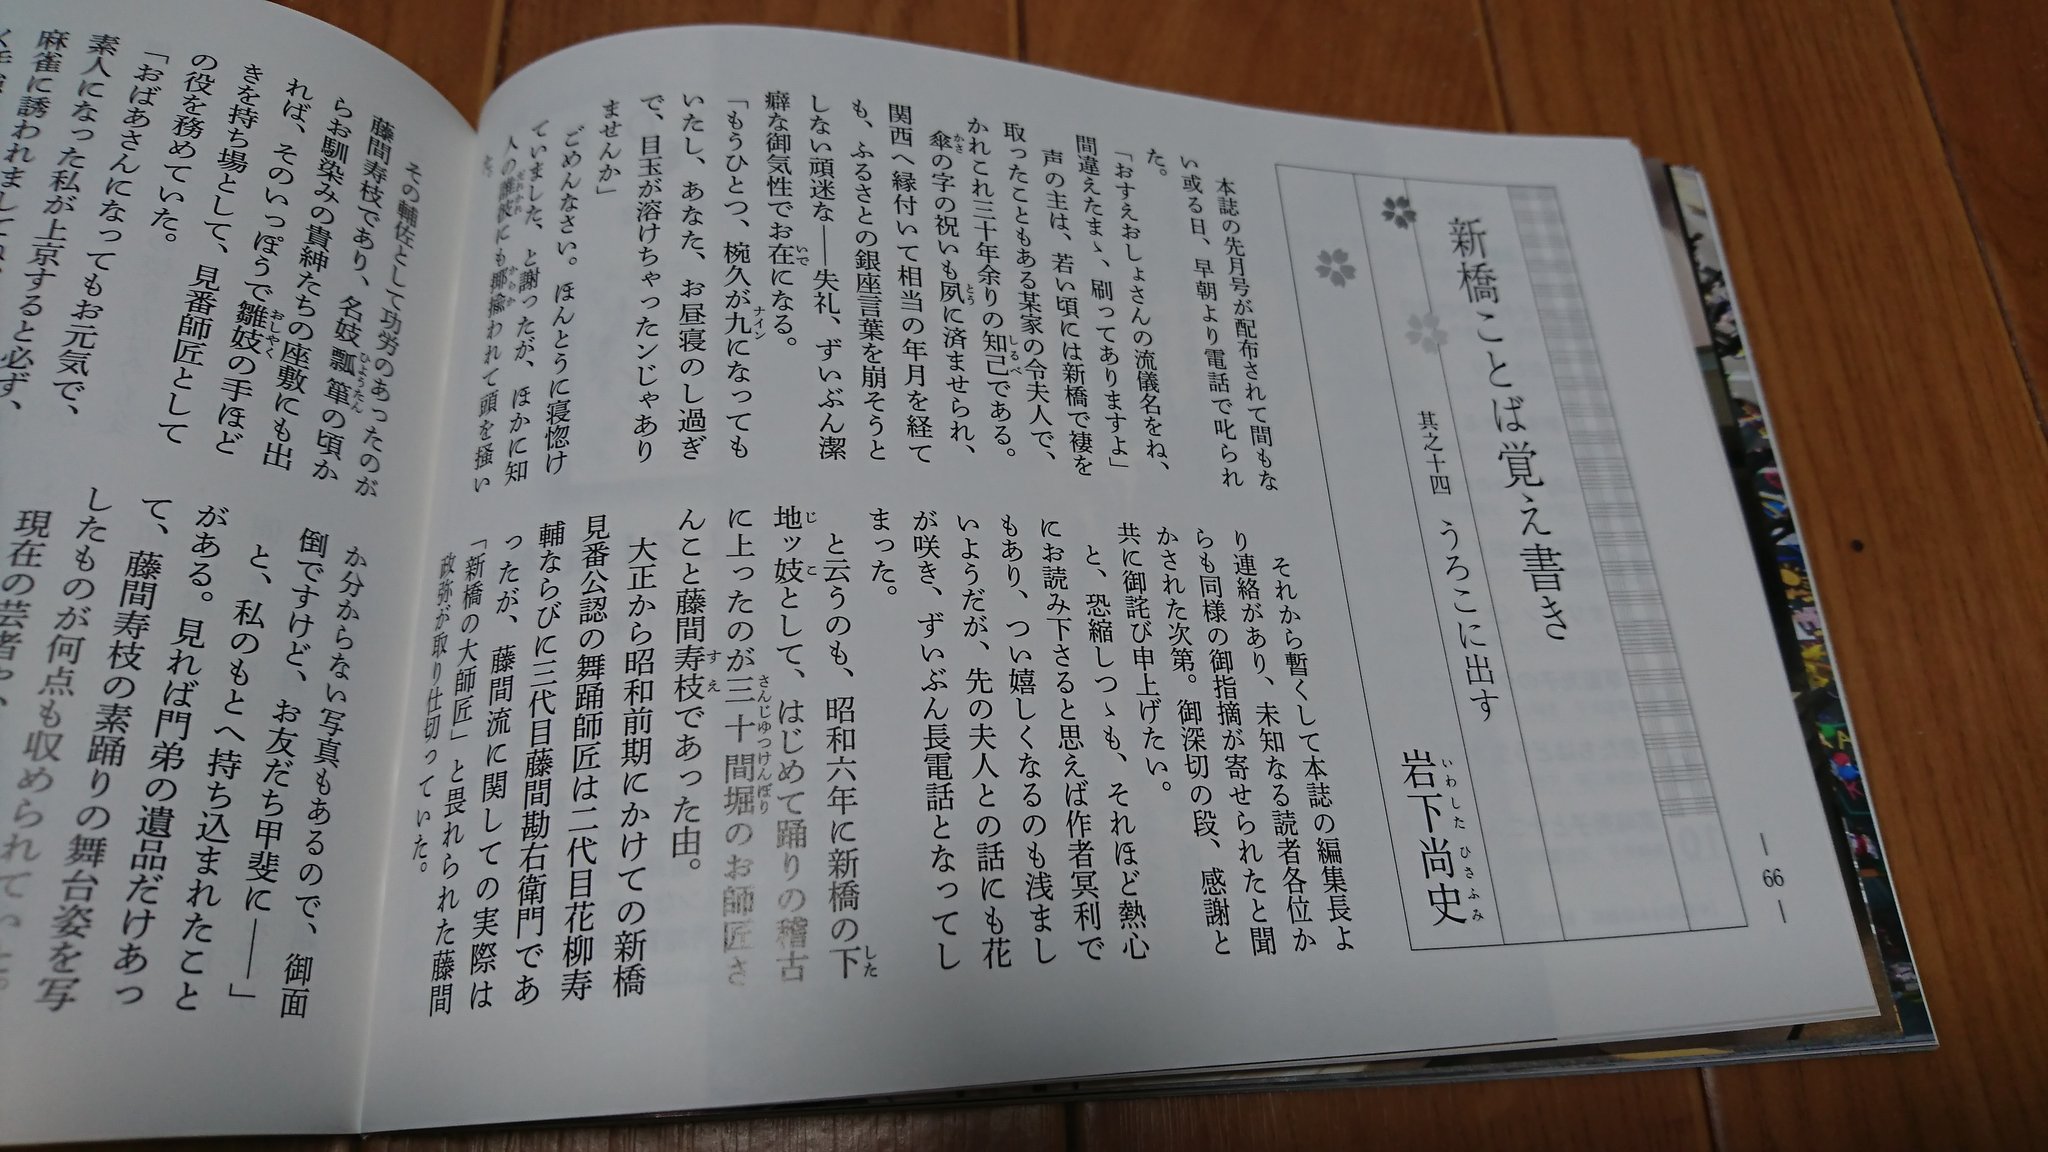 新橋ことば覚え書き
其之十四 うろこに出す
岩下尚史
いわした ひさふみ
本誌の先月号が配布されて間もな
い或る日、早朝より電話で叱られ
た。
「おすえおしょさんの流儀名をね、
間違えたまゝ、刷ってありますよ」
声の主は、若い頃には新橋で褄を
取ったこともある某家の令夫人で、
かれこれ三十年余りの知己である。
傘の字の祝いも夙に済ませられ、
関西へ縁付いて相当の年月を経て
も、ふるさとの銀座言葉を崩そうと
しない頑迷な――失礼、ずいぶん潔
癖な御気性でお在になる。
「もうひとつ、椀久が九になっても
いたし、あなた、お昼寝のし過ぎ
で、目玉が溶けちゃったンじゃあり
ませんか」
ごめんなさい。ほんとうに寝惚け
ていました、と謝ったが、ほかに知
人の誰彼にも揶揄われて頭を掻い
た。
それから暫くして本誌の編集長よ
り連絡があり、未知なる読者各位か
らも同様の御指摘が寄せられたと聞
かされた次第。御深切の段、感謝と
共に御詫び申上げたい。
と、恐縮しつゝも、それほど熱心
にお読み下さると思えば作者冥利で
もあり、つい嬉しくなるのも浅まし
いようだが、先の夫人との話にも花
が咲き、ずいぶん長電話となってし
まった。
と云うのも、昭和六年に新橋の下
地ッ妓として、はじめて踊りの稽古
に上ったのが三十間堀のお師匠さ
んこと藤間寿枝であった由。
大正から昭和前期にかけての新橋
見番公認の舞踊師匠は二代目花柳寿
輔ならびに三代目藤間勘右衛門であ
ったが、藤間流に関しての実際は
「新橋の大師匠」と畏れられた藤間
政弥が取り仕切っていた。
66
その輔佐として功労のあったのが
藤間寿枝であり、名妓瓢箪の頃か
らお馴染みの貴紳たちの座敷にも出
れば、そのいっぽうで雛妓の手ほど
きを持ち場として、見番師匠として
の役を務めていた。
「おばあさんになってもお元気で、
素人になった私が上京すると必ず、
麻雀に誘われまして
か分からない写真もあるので、御面
倒ですけど、お友だち甲斐に――」
と、私のもとへ持ち込まれたこと
がある。見れば門弟の遺品だけあっ
て、藤間寿枝の素踊りの舞台姿を写
したものが何点も収められていた。
現在の芸者や、